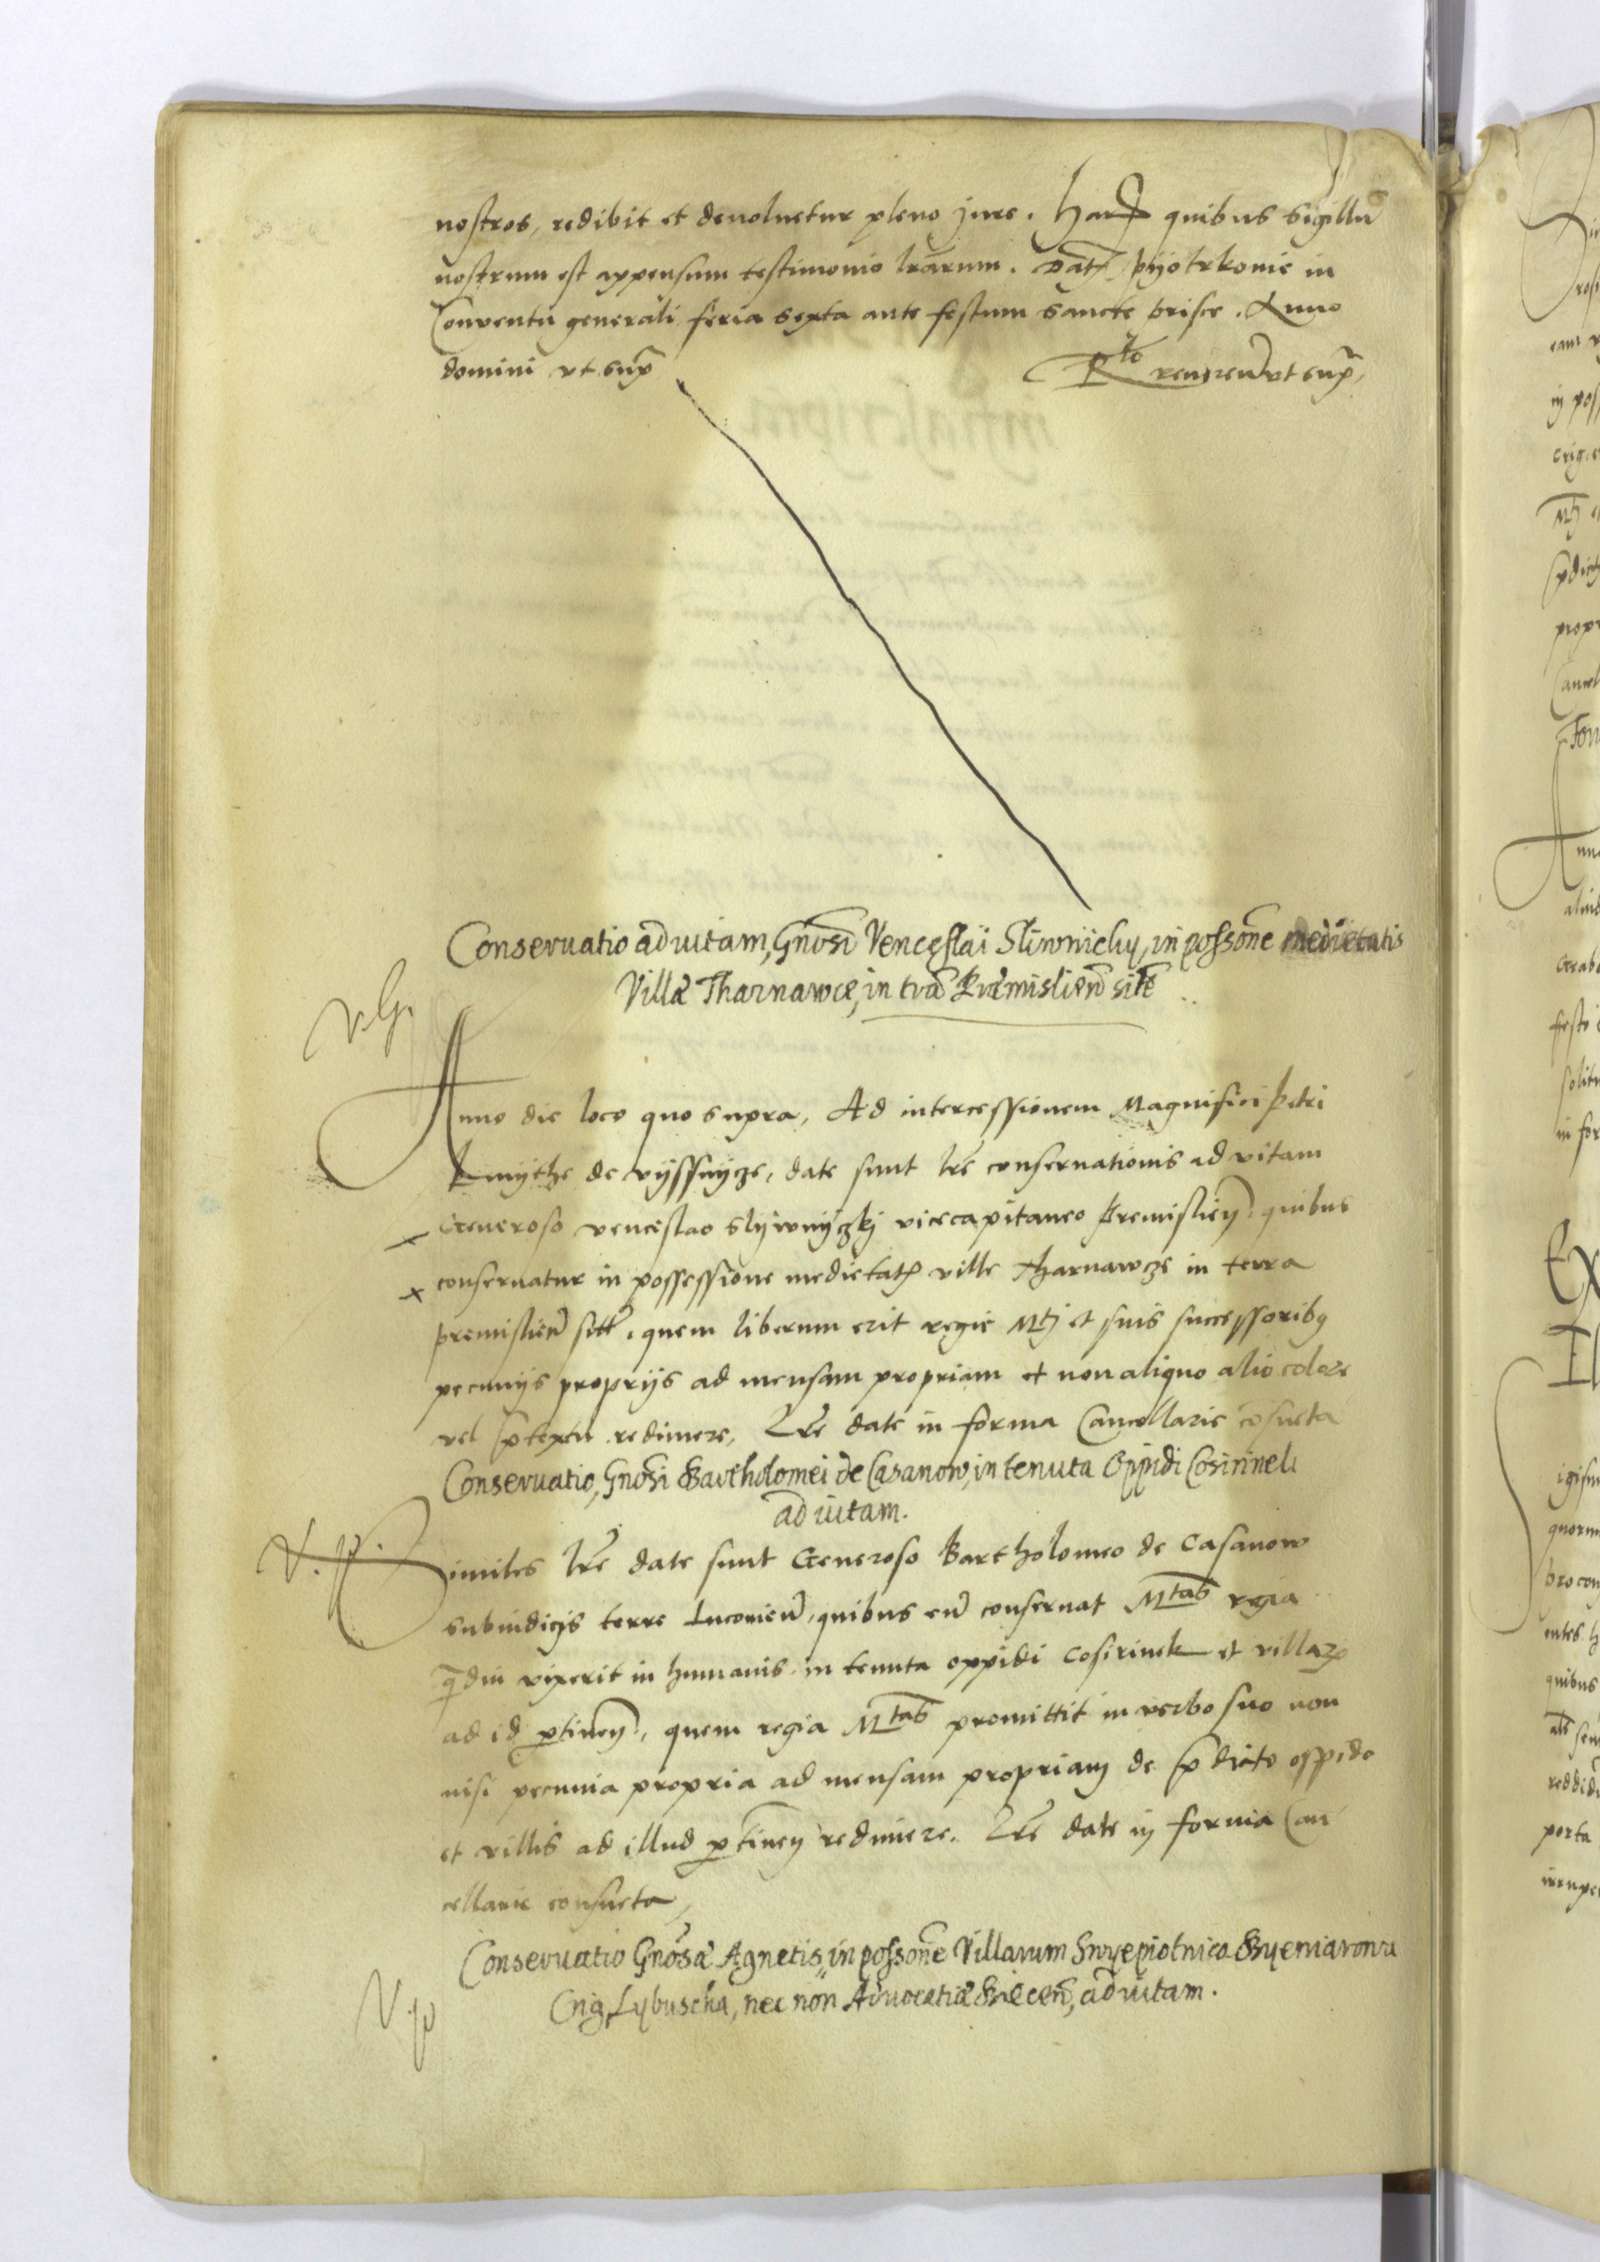 nostros, redibit et devoluetur pleno jure. Har quibus sigillū
nostrum est appensum testimonio lrarum. Dat Pyotrkovie in
Conventu generali feria sexta ante festum sancte Prisce. Anno
domini ut sup
Rto reuren ut sup,
Conservatio ad vitam, Gnosi Venceslai Sliwnicky, in possone medietatis
Villæ Tharnawce, in tra Præmislien site
Anno die loco quo supra, Ad intercessionem Magnifici Petri
Kmythe de Vyssnycze, date sunt lre conservationis ad vitam
Generoso Venceslao Slywnyczky vicecapitaneo Premislien, quibus
conservatur in possessione medietat ville Tharnawcze in terra
Premislien site, quem liberum erit regie Mti et suis successoribus
pecuniis propriis ad mensam propriam et non aliquo alio colore
vel ptextu redimere, Lre date in forma Cancellarie cōsueta
Conservatio, Gnosi Bartholomei de Casanow, in tenuta Oppidi Cosirinek
ad vitam.
Similes lre date sunt Generoso Bartholomeo de Casanow
subiudicis terre Lucovien, quibus eū conservat Mtas regia
qdiu vixerit in humanis in tenuta oppidi Cosirinek et villar
ad id ptinen, quem regia Mtas promittit in verbo suo non
nisi pecunia propria ad mensam propriam de pdicto oppido
et villis ad illud ptinen redimere. Lre date in forma Can
cellarie consueta,
Conservatio Gnosæ Agnetis, in possone Villarum
Lybuscha, nec non Advocatiæ Biecen, ad vitam.